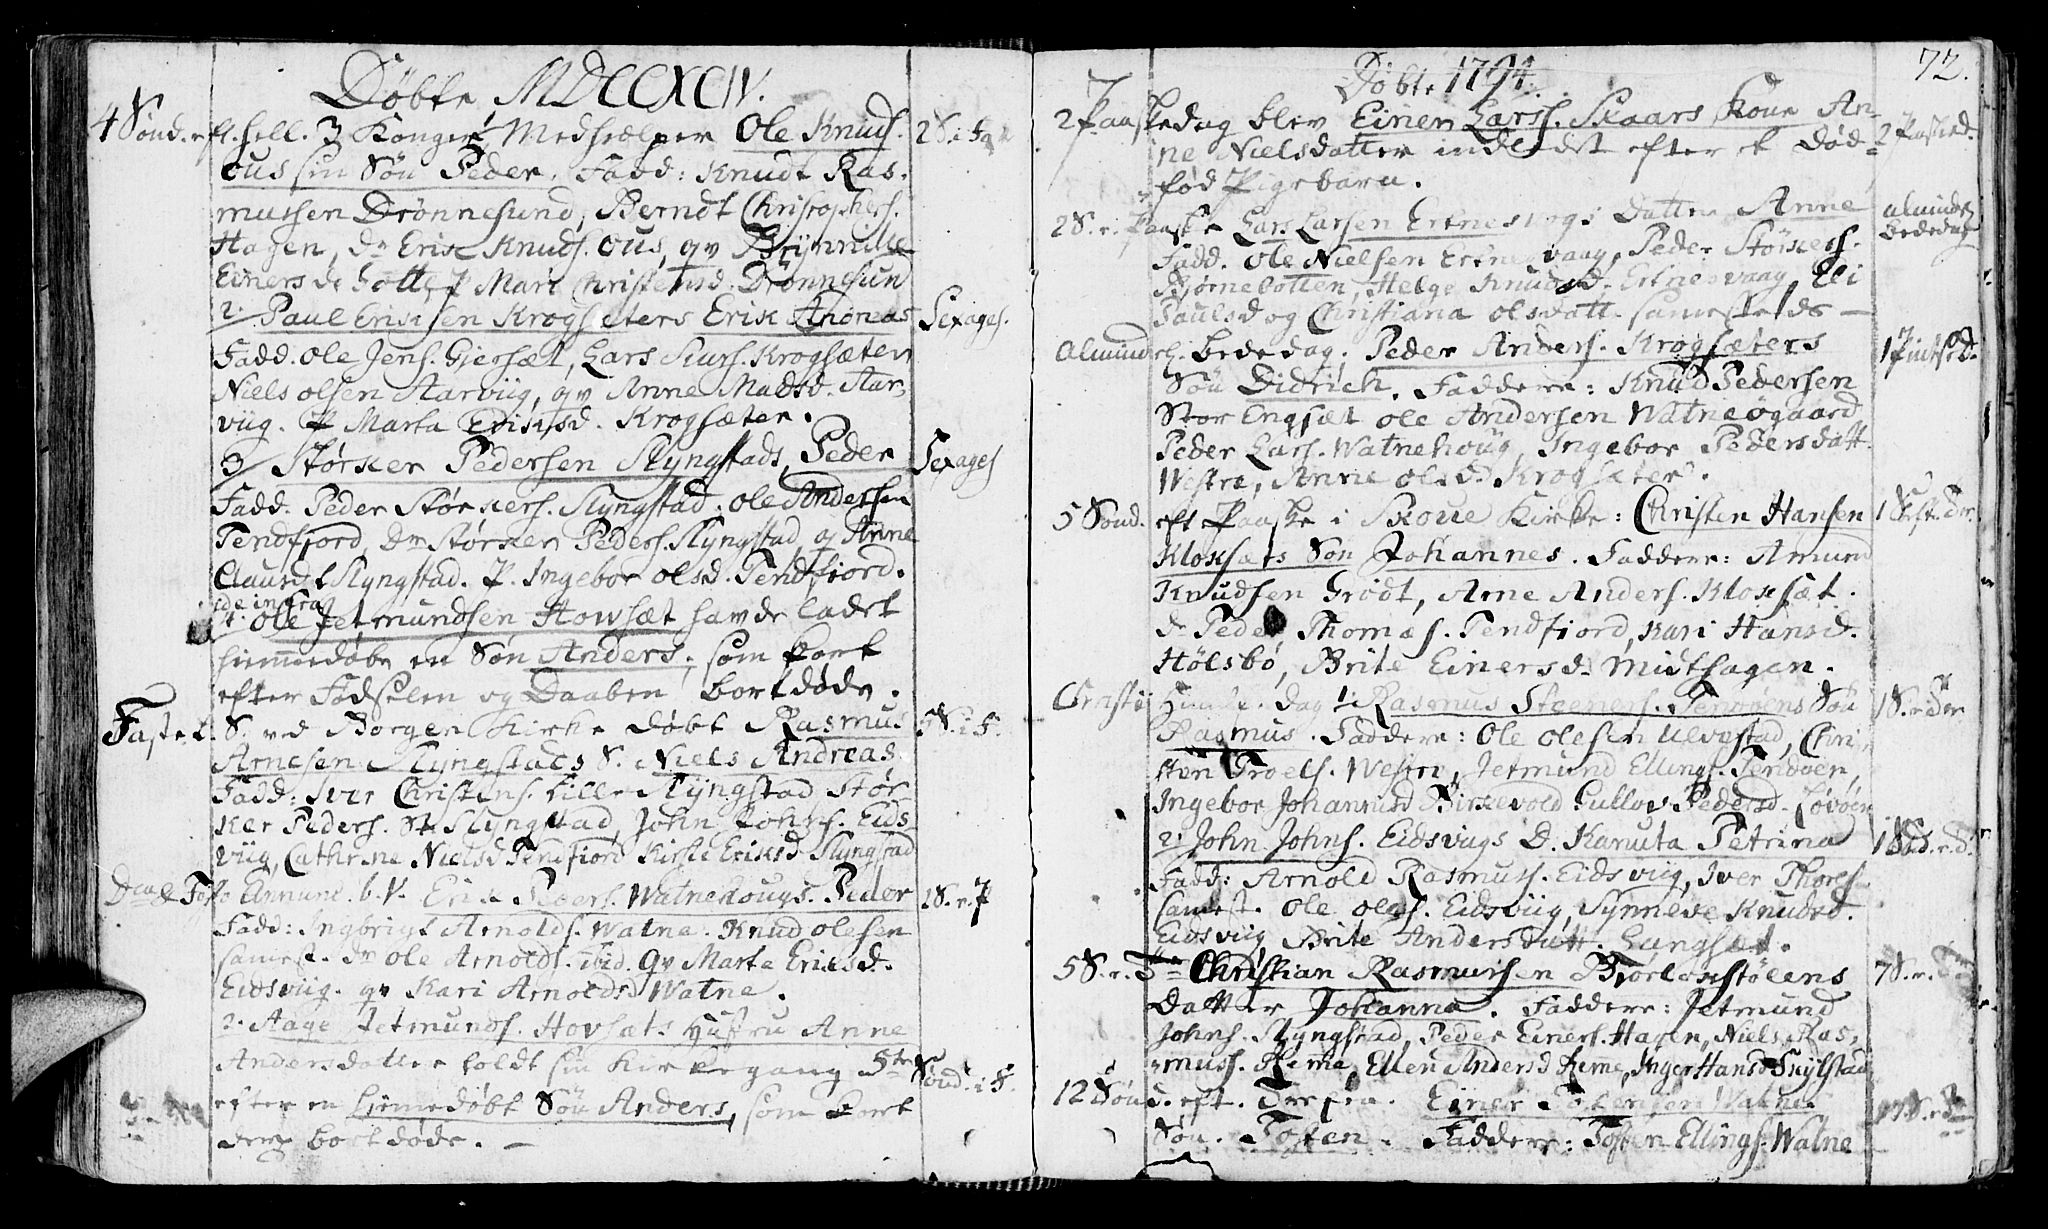 Døbte MDCCXCIV.
4 Sønd. eft. hell. 3 Konger Medhielper Ole Knuds. 2 S. i Fa
ous sin Søn Peder. Fadd: Knudt Ras-
mussen Drønnesund, Berndt Christophers.
Hagen, Dr Erik Knuds. Ous, gv Brynnille
Einersd. P Mari Christensd. Drønnesun
2. Paul Eriksen Krogsæters Erik Andreas Sexages.
Fadd. Ole Jens. Giersæt, Lars Siurs. Krogsæter
Niels Olsen Aarviig, gv Anne Madsd. Aar-
viig. P Marta Eriksd. Krogsæter.
3 Størker Pedersen Slyngstads Peder Sexages
Fadd. Peder Størkers. Slyngstad, Ole Andersen
Tendfjord, Dr Størker Peders. Slyngstad, gv Anne
Clausd. Slyngstad. P. Ingebor Olsd. Tendfiord.
vide infra
4. Ole Jetmundsen Hovsæt havde ladet
hiemmedøbe en Søn Anders, som kort
efter Fødselen og Daaben bortdøde.
Fastel. S. ved Borgen Kirke døbt Rasmus 5 S. i F.
Arnesen Slyngstads S. Niels Andreas
Fadd: Iver Christens. Lille Slyngstad Stør
ker Peders. St Slyngstad, John Johns. Eids
viig, Cathrine Nielsd Tendfiord Kirsti Eriksd Slyngstad
Festo Annunc. b. V. Erik Peders. Watnehougs. Peder 1 S. e. P
Fadd: Ingbrigt Arnolds. Watne. Knud Olesen
samest. Dr Ole Arnolds. ibid. gv Marte Eriksd.
Eidsviig. gv Kari Arnoldsd Watne.
2. Aage Jetmunds. Hovsæts Hustru Anne
Andersdatter holdt sin Kirkegang 5te Sønd. i F.
efter en Hiemedøbt Søn Anders, som kort
derp bortdøde. —
Døbte 1794. 72.
2 Paaskedag blev Einer Lars. Skaars Kone An- 2 Paaskd.
ne Nielsdatter indledet efter et Død-
fød Pigebarn.
2 S. e. Paaske Lars Larsen Ertnesvogs Datter Anne Alminde
Bededag
Fadd. Ole Nielsen Ertnesvaag, Peder Størkers.
Bjørnebotten, Helge Knudsd. Ertnesvaag, Eli
Paulsd og Christiana Olsdatt. samesteds —
Almindel. bededag. Peder Anders. Krogsæters 1 Pintsed.
Søn Didrich. Faddere: Knud Pedersen
Stor Engsæt Ole Andersen Watneøgaard
Peder Lars. Watnehoug, Ingebor Pedersdatt.
Westre, Anne Olsd. Krogsæter.
5 Sønd. eft. Paaske i Skoue Kirke: Christen Hansen 1 S. eft. Tr.
Kloksæts Søn Johannes. Faddere: Amund
Knudsen Grødt, Arne Anders. Kloksæt.
Dr Peder Thomæs. Tendfiord, Kari Hansd.
Hølsbø, Brite Einersd. Midthagen.
Christi Himmelf. Dag 1. Rasmus Steeners. Tenøens Søn
Rasmus. Faddere: Ole Olesen Ulvestad, Chri-
sten Troels. Westre, Jetmund Ellings. Tenøen,
Ingebor Johannisd Birkevold Gullov Pedersd. Løvøen
2. John Johns. Eidsvugs D. Kanuta Petrina
Fadd: Arnold Rasmuss. Eidsviig, Iver Thores.
samest. Ole Oles. Eidsviig, Synneve Knudsd.
Eidsviig, Brite Andersdatt. Langsæt.
5 S. e. Tr Christian Rasmussen Biorlokstølens 7 S. e. Tr
Datter Johanna. Faddere: Jetmund
Johns. Slyngstad, Peder Einers. Hagen, Niels Ras-
muss. Reme, Ellen Andersd Reme, Inger Hansd Suylstad
12 Sønd. eft. Trefen. Einer Tostensen Watnes
Søn. Tosten. Faddere: Tosten Ellings. Watne